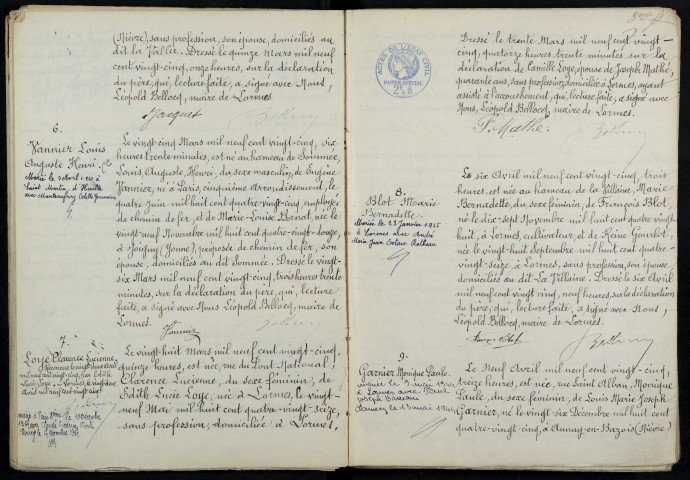 (Nièvre), sans profession, son épouse, domiciliés au
dit la Vallée. Dressé le quinze Mars mil neuf
cent vingt-cinq, onze heures, sur la déclaration
du père, qui, lecture faite, a signé avec Nous,
Léopold Bellocq, maire de Lormes.
Jacquet
6.
Vannier Louis
Auguste Henri
Marié le
Saint Martin d'
avec
Le vingt cinq Mars mil neuf cent vingt-cinq, dix
heures trente minutes, est né au hameau de Sommée,
Louis Auguste Henri, du sexe masculin, de Eugène
Vannier, né à Paris, cinquième Arrondissement, le
quatre Juin mil huit cent quatre-vingt, employé
de chemin de fer, et de Marie-Louise Bornat, née le
vingt-neuf Novembre mil huit cent quatre-vingt-douze,
à Joigny (Yonne), préposée de chemin de fer, son
épouse, domiciliés au dit Sommée. Dressé le vingt-
six Mars mil neuf cent vingt-cinq, trois heures trente
minutes, sur la déclaration du père, qui, lecture
faite, a signé avec Nous Léopold Bellocq, maire de
Lormes.
Vannier
7.
Loye Clarence Lucienne.
Le vingt-huit Mars mil neuf cent vingt-cinq,
quinze heures, est née, rue du Pont National,
Clarence Lucienne, du sexe féminin, de
Edith Lucie Loye, née à Lormes, le vingt-
neuf Mai mil huit cent quatre-vingt-seize,
sans profession, domiciliée à Lormes.
Dressé le trente Mars mil neuf cent vingt-
cinq, quatorze heures, trente minutes, sur la
déclaration de Camille Loye, épouse de Joseph Mathé,
quarante ans, sans profession, domiciliée à Lormes, ayant
assisté à l'accouchement, qui, lecture faite, a signé avec
Nous, Léopold Bellocq, maire de Lormes.
F. Mathé
ACTES DE L'ETAT CIVIL
PAPIER SPECIAL
8.
Blot Marie
Bernadette.
Mariée le 23 Janvier 1965
à Lormes avec André
Marie Jean Octave Ratheau
Le six Avril mil neuf cent vingt-cinq, trois
heures, est née au hameau de la Villaine, Marie
Bernadette, du sexe féminin, de François Blot,
né le dix-sept Novembre mil huit cent quatre-vingt-
huit, à Lormes, cultivateur, et de Reine Goulot,
née le vingt-huit Septembre mil huit cent quatre-
vingt-seize, à Lormes, sans profession, son épouse
domiciliés au dit La Villaine. Dressé le six Avril
mil neuf cent vingt-cinq, neuf heures, sur la déclaration
du père, qui, lecture faite, a signé avec Nous,
Léopold Bellocq, maire de Lormes.
9.
Garnier Monique Paule.
à Lormes avec
Joseph
Le Neuf Avril mil neuf cent vingt-cinq,
treize heures, est née, rue Saint Alban, Monique
Paule, du sexe féminin, de Louis Marie Joseph
Garnier, né le vingt-six Décembre mil huit cent
quatre-vingt-cinq, à Aunay-en-Bazois (Nièvre)